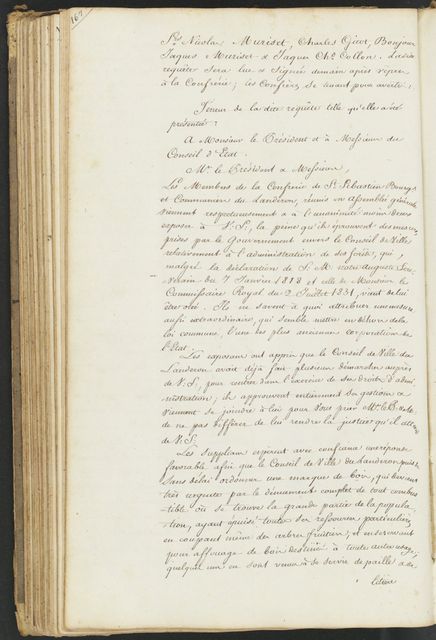 167
Srs Nicolas Muriset, Charles Gicot, Bonjour
Jaques Muriset & Jaques Chs Collon. La dite
requête sera lue & signée demain après vepres
à la Confrérie; les Confrères se tenant pour avertis.
Teneur de la dite requête telle qu'elle a été
présentée:
A Monsieur le Président & à Messieurs du
Conseil d'Etat.
Mr. le Président & Messieurs,
Les Membres de la Confrerie de St. Sébastien Bourgs
et Communiers du Landeron, réunis en assemblée générale
viennent respectueusement & à l'unanimité
exposer à V. S., la peine qu'ils éprouvent des mesures
prises par le Gouvernement envers le Conseil de Ville
relativement à l'administration de ses forêts, qui,
malgré la déclaration de S. M. notre auguste Sou
verain du 7 Janvier 1818 et celle de Monsieur le
Commissaire Royal du 2 Juillet 1831, vient de lui
être oté. Ils ne savent à quoi attribuer une mesure
aussi extraordinaire, qui semble mettre en dehors de la
loi commune, l'une des plus anciennes corporations de
l'Etat.
Les exposans ont appris que le Conseil de Ville du
Landeron avait déjà fait plusieurs démarches auprès
de V. S., pour rentrer dans l'exercice de ses droits d'admi
nistration; ils approuvent entièrement sa gestion &
viennent se joindre à lui pour vous prier
de ne pas différer de lui rendre la justice qu'il attend
de V. S.
Les supplians espèrent avec confiance une réponse
favorable afin que le Conseil de Ville du Landeron puisse
sans délai ordonner une marque de bois, qui devient
très urgente par le dénument complet de tout combus
tible où se trouve la grande partie de la popula
tion, ayant épuisé toutes ses ressources particulières
en coupant même des arbres fruitiers, et en servant
pour affouage de bois destiné à toute autre usage;
quelques uns en sont venus à se servir de paille & de
litière